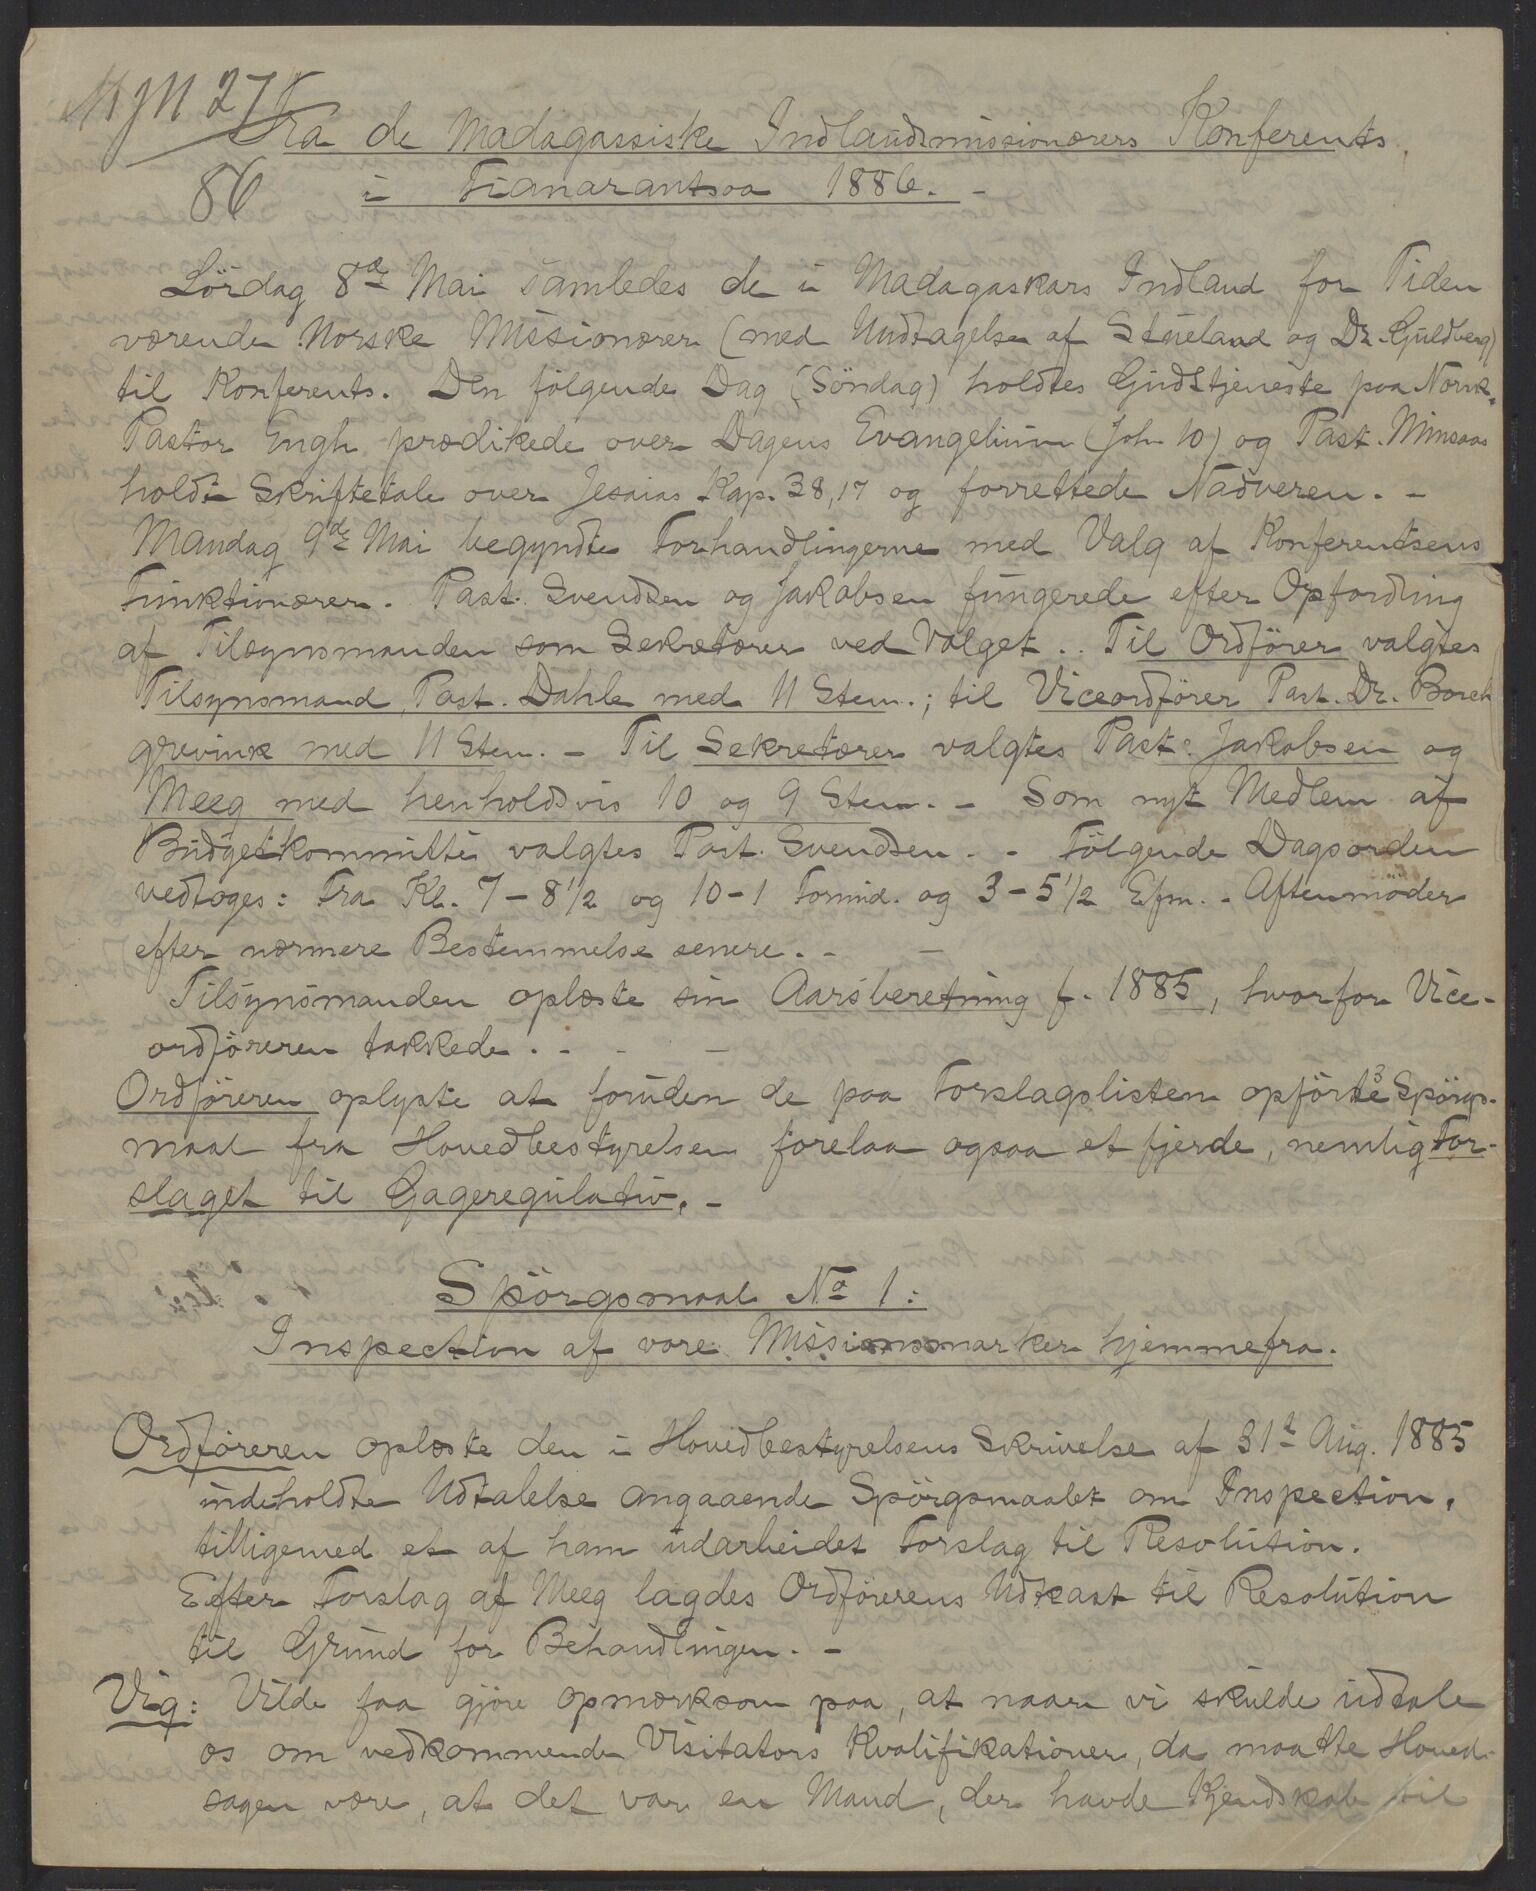 Fra de Madagassiske Indlandsmissionærers Konferents
86 i Fianarantsoa 1886. -
Lördag 8de Mai samledes de i Madagaskars Indland for Tiden
værende Norske Missionærer (med Undtagelse af Stueland og Dr. Guldberg)
til Konferents. Den fölgende Dag (Söndag) holdtes Gudstjeneste paa Norsk.
Pastor Engh prædikede over Dagens Evangelium (Joh 10) og Past. Minsaas
holdt Skriftetale over Jesaias Kap. 38,17 og forrettede Nadveren. -
Mandag 9de Mai begyndte Forhandlingerne med Valg af Konferentsens
Funktionærer. Past. Svendsen og Jakobsen fungerede efter Opfordring
af Tilsynsmanden som Sekretærer ved Valget. Til Ordförer valgtes
Tilsynsmand, Past. Dahle med 11 Stem.; til Viceordförer Past. Dr. Borch
grevink med 11 Stem. - Til Sekretærer valgtes Past. Jakobsen og
Meeg med henholdsvis 10 og 9 Stem. - Som nyt Medlem af
Budgetkommitte valgtes Past. Svendsen. - Fölgende Dagsorden
vedtoges: Fra Kl. 7 - 8 1/2 og 10 - 1 Formid. og 3 - 5 1/2 Efm. - Aftenmöder
efter nærmere Bestemmelse senere. -
Tilsynsmanden oplæste sin Aarsberetning f. 1885, hvorfor Vice-
ordföreren takkede. -
Ordföreren oplyste at foruden de paa Forslagslisten opförte 3 Spörgs-
maal fra Hovedbestyrelsen forelaa ogsaa et fjerde, nemlig For-
slaget til Gageregulativ. -
Spörgsmaal No 1:
Inspection af vore Missionsmarker hjemmefra.
Ordföreren oplæste den i Hovedbestyrelsens Skrivelse af 31t Aug. 1885
indeholdte Udtalelse angaaende Spörgsmaalet om Inspection,
tilligemed et af ham udarbeidet Forslag til Resolution.
Efter Forslag af Meeg lagdes Ordförerens Udkast til Resolution
til Grund for Behandlingen. -
Vig: Vilde faa gjöre opmærksom paa, at naar vi skulde udtale
os om vedkommende Visitators Kvalifikationer, da maatte Hoved-
sagen være, at det var en Mand, der havde Kjendskab til